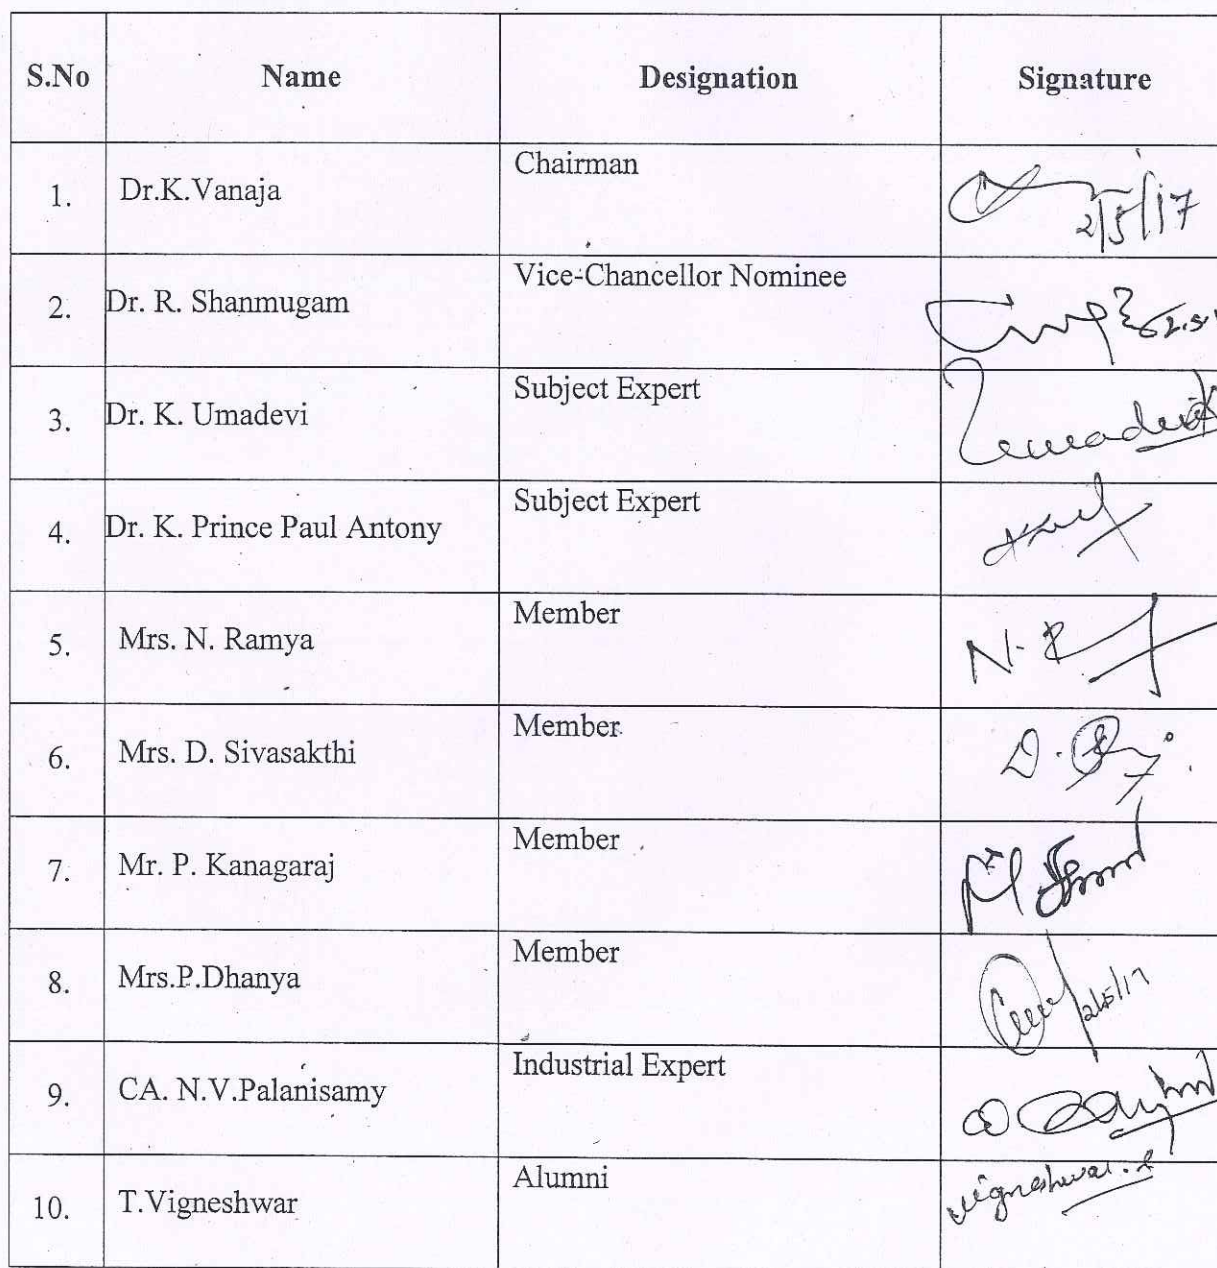 S.No Name Designation Signature
1. Dr.K.Vanaja Chairman 2/5/17
2. Dr. R. Shanmugam Vice-Chancellor Nominee
3. Dr. K. Umadevi Subject Expert Umadevi
4. Dr. K. Prince Paul Antony Subject Expert
5. Mrs. N. Ramya Member N. R
6. Mrs. D. Sivasakthi Member D.
7. Mr. P. Kanagaraj Member
8. Mrs.P.Dhanya Member 2/5/17
9. CA. N.V.Palanisamy Industrial Expert
10. T.Vigneshwar Alumni Vigneshwar.T